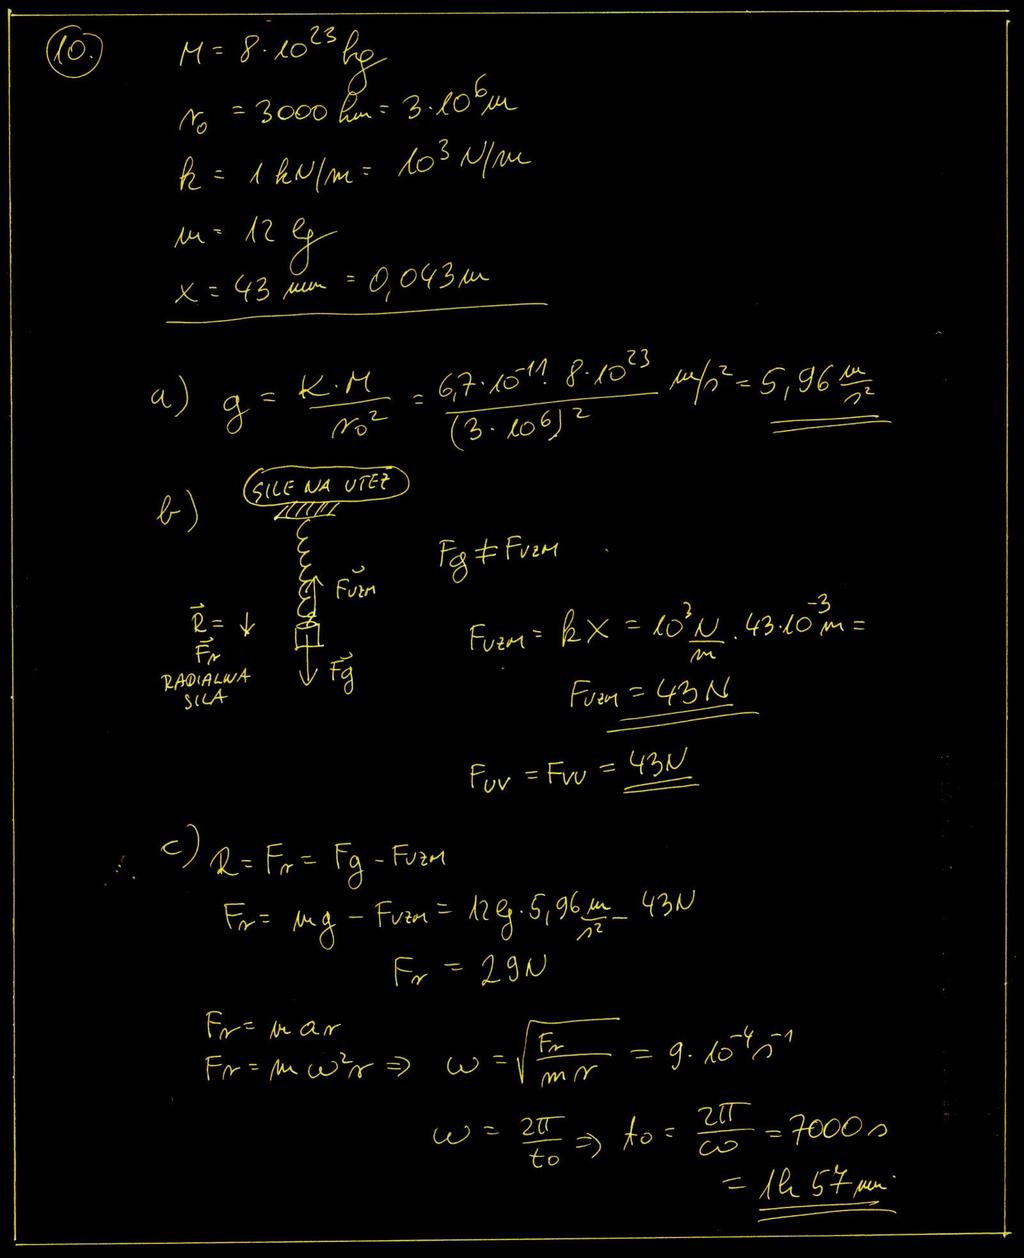 10.
M = 8·10²³ kg
r₀ = 3000 km = 3·10⁶ m
k = 1 kN/m = 10³ N/m
m = 12 kg
x = 43 mm = 0,043 m
a) g = K·M / r₀² = 6,7·10⁻¹¹·8·10²³ / (3·10⁶)² m/s² = 5,96 m/s²
b) SILE NA UTEŽ
Fg ≠ Fvzm
Fvzm
R = ↓
Fr
RADIALNA
SILA
Fg
Fvzm = kx = 10³ N/m · 43·10⁻³ m =
Fvzm = 43 N
Fuv = Fvu = 43 N
c) R = Fr = Fg - Fvzm
Fr = mg - Fvzm = 12 kg · 5,96 m/s² - 43 N
Fr = 29 N
Fr = m ar
Fr = m ω² r ⇒ ω = √(Fr / m r) = 9·10⁻⁴ s⁻¹
ω = 2π / t₀ ⇒ t₀ = 2π / ω = 7000 s
= 1h 57 min